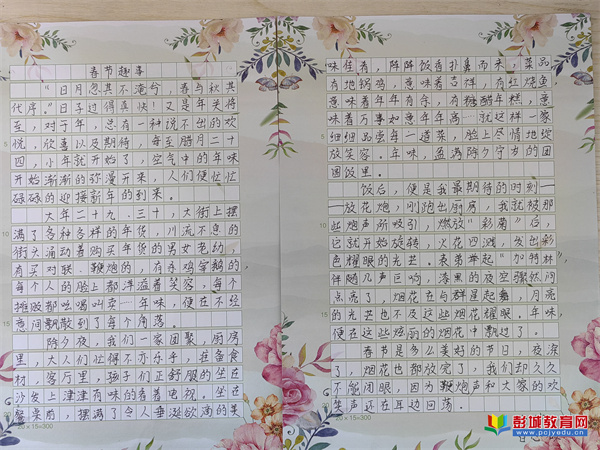 春节趣事
“日月忽其不淹兮，春与秋其
代序。”日子过得真快！又是年关将
至，对于年，总有一种说不出的欢
悦、欣喜以及期待，每至腊月二十
四，小年就开始了，空气中的年味
开始渐渐的弥漫开来，人们便忙忙
碌碌的迎接新年的到来。
大年二十九、三十，大街上摆
满了各种各样的年货，川流不息的
街头涌动着购买年货的男女老幼，
有买对联、鞭炮的，有买鸡宰鹅的，
每个人的脸上都洋溢着笑容，每个
摊贩都吆喝叫卖—年味，便在不经
意间飘散到了每个角落。
除夕夜，我们一家团聚，厨房
里，大人们忙得不亦乐乎，准备食
材，客厅里，孩子们正舒服的坐在
沙发上津津有味的看着电视。坐在
餐桌前，摆满了令人垂涎欲滴的美
20×15=300
味佳肴，阵阵饭香扑鼻而来，菜品
有地锅鸡，意味着吉祥，有红烧鱼，
意味着年年有余，有糖醋年糕，意
味着万事如意年年高…就这样一家
细细品尝每一道菜，脸上尽情地绽
放笑容。年味，盈满除夕守岁的团
圆饭里。
饭后，便是我最期待的时刻—
—放花炮，刚跑出厨房，我就被那
些炮声所吸引，燃放“彩菊”后，
它就开始旋转，火花四溅，发出彩
色耀眼的光芒。表弟举起“加特林”
伴随几声巨响，漆黑的夜空骤然间
点亮了，烟花在与群星起舞，月亮
的光芒也不及这些烟花耀眼。年味，
便在这些炫丽的烟花中飘过了。
春节是多么美好的节日，夜深
了，烟花也都放完了，我们却久久
不能闭眼，因为鞭炮声和大家的欢
笑声还在耳边回荡。
20×15=300
彭城教育网
www.pcjyedu.cn